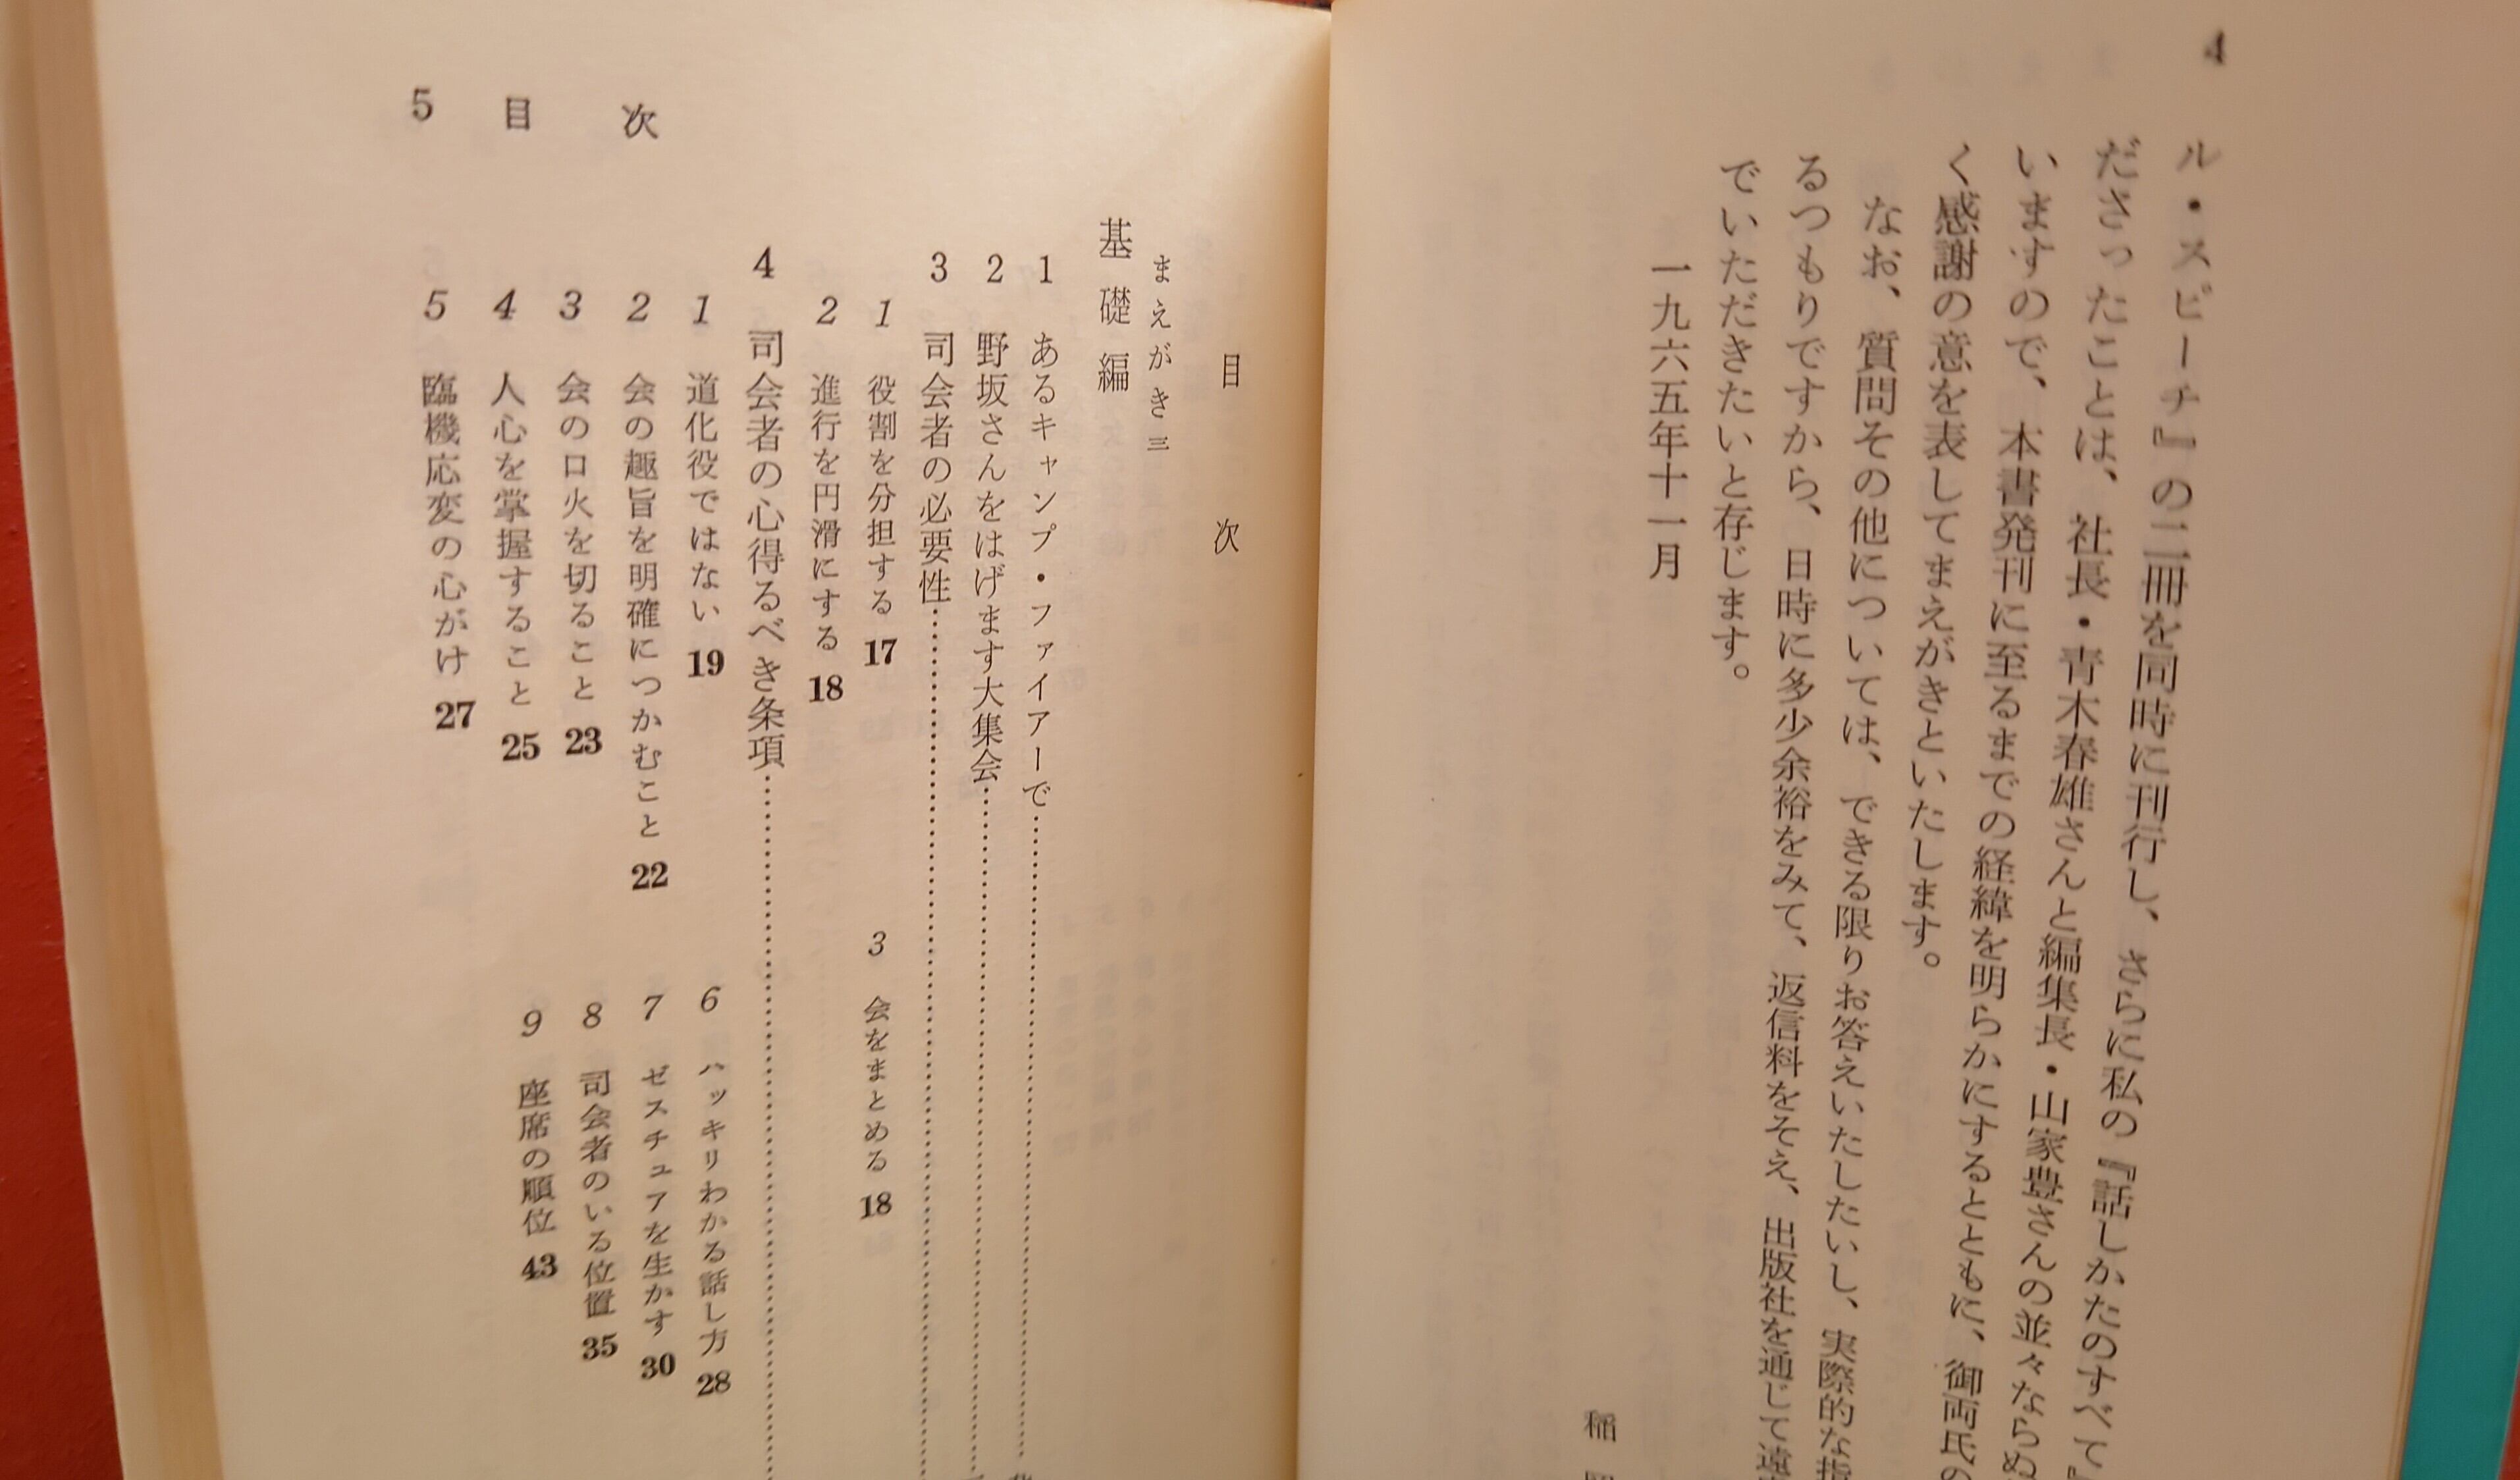 4
ル・スピーチ』の二冊を同時に刊行し、さらに私の『話しかたのすべて』
ださったことは、社長・青木春雄さんと編集長・山家豊さんの並々ならぬ
いますので、本書発刊に至るまでの経緯を明らかにするとともに、御両氏の
く感謝の意を表してまえがきといたします。
なお、質問その他については、できる限りお答えいたしたいし、実際的な指
るつもりですから、日時に多少余裕をみて、返信料をそえ、出版社を通じて遠
でいただきたいと存じます。
一九六五年十一月
稲
目次
まえがき 三
基礎編
1 あるキャンプ・ファイアーで
2 野坂さんをはげます大集会
3 司会者の必要性
1 役割を分担する 17
2 進行を円滑にする 18
3 会をまとめる 18
4 司会者の心得るべき条項
1 道化役ではない 19
2 会の趣旨を明確につかむこと 22
3 会の口火を切ること 23
4 人心を掌握すること 25
5 臨機応変の心がけ 27
6 ハッキリわかる話し方 28
7 ゼスチュアを生かす 30
8 司会者のいる位置 35
9 座席の順位 43
5 目次